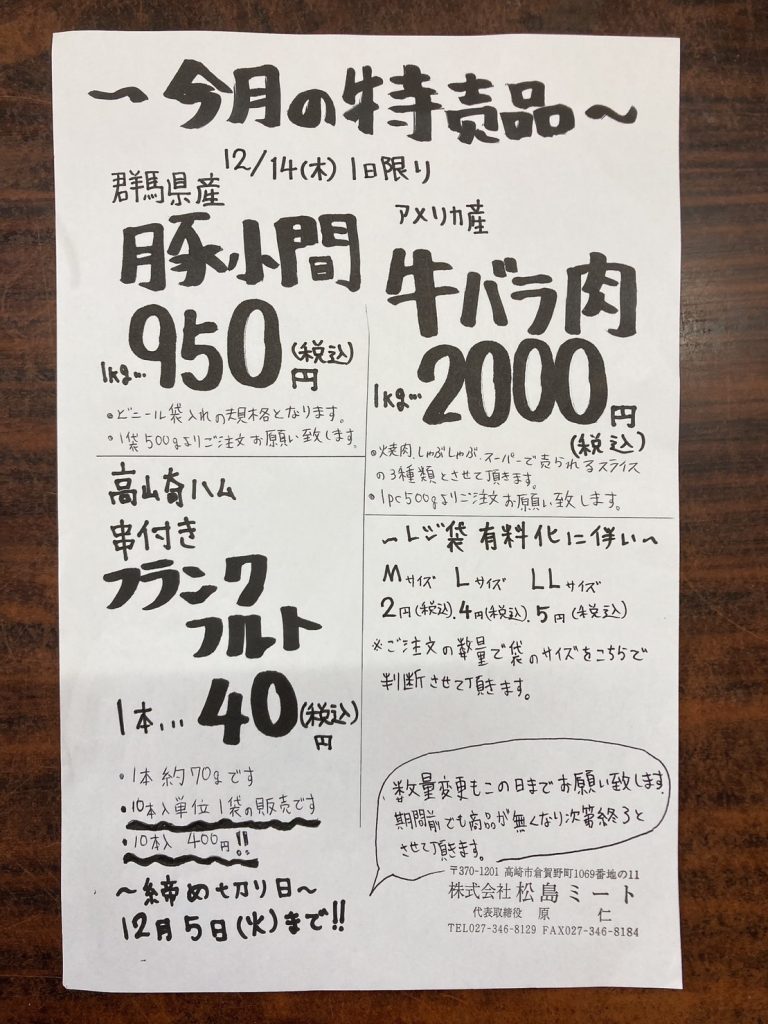 ～今月の特売品～
12/14(木) 1日限り
群馬県産
豚小間
1kg…950円(税込)
・ビニール袋入れの規格となります。
・1袋500gよりご注文お願い致します。
アメリカ産
牛バラ肉
1kg…2000円(税込)
・焼肉.しゃぶしゃぶ.スーパーで売られるスライス
の3種類とさせて頂きます。
・1pc500gよりご注文お願い致します。
高崎ハム
串付き
フランク
フルト
1本…40円(税込)
・1本約70gです
・10本入単位1袋の販売です
・10本入 400円!!
～締め切り日～
12月5日(火)まで!!
～レジ袋 有料化に伴い～
Mサイズ Lサイズ LLサイズ
2円(税込).4円(税込).5円(税込)
※ご注文の数量で袋のサイズをこちらで
判断させて頂きます。
数量変更もこの日までお願い致します。
期間前でも商品が無くなり次第終了と
させて頂きます。
〒370-1201 高崎市倉賀野町1069番地の11
株式会社 松島ミート
代表取締役 原 仁
TEL027-346-8129 FAX027-346-8184